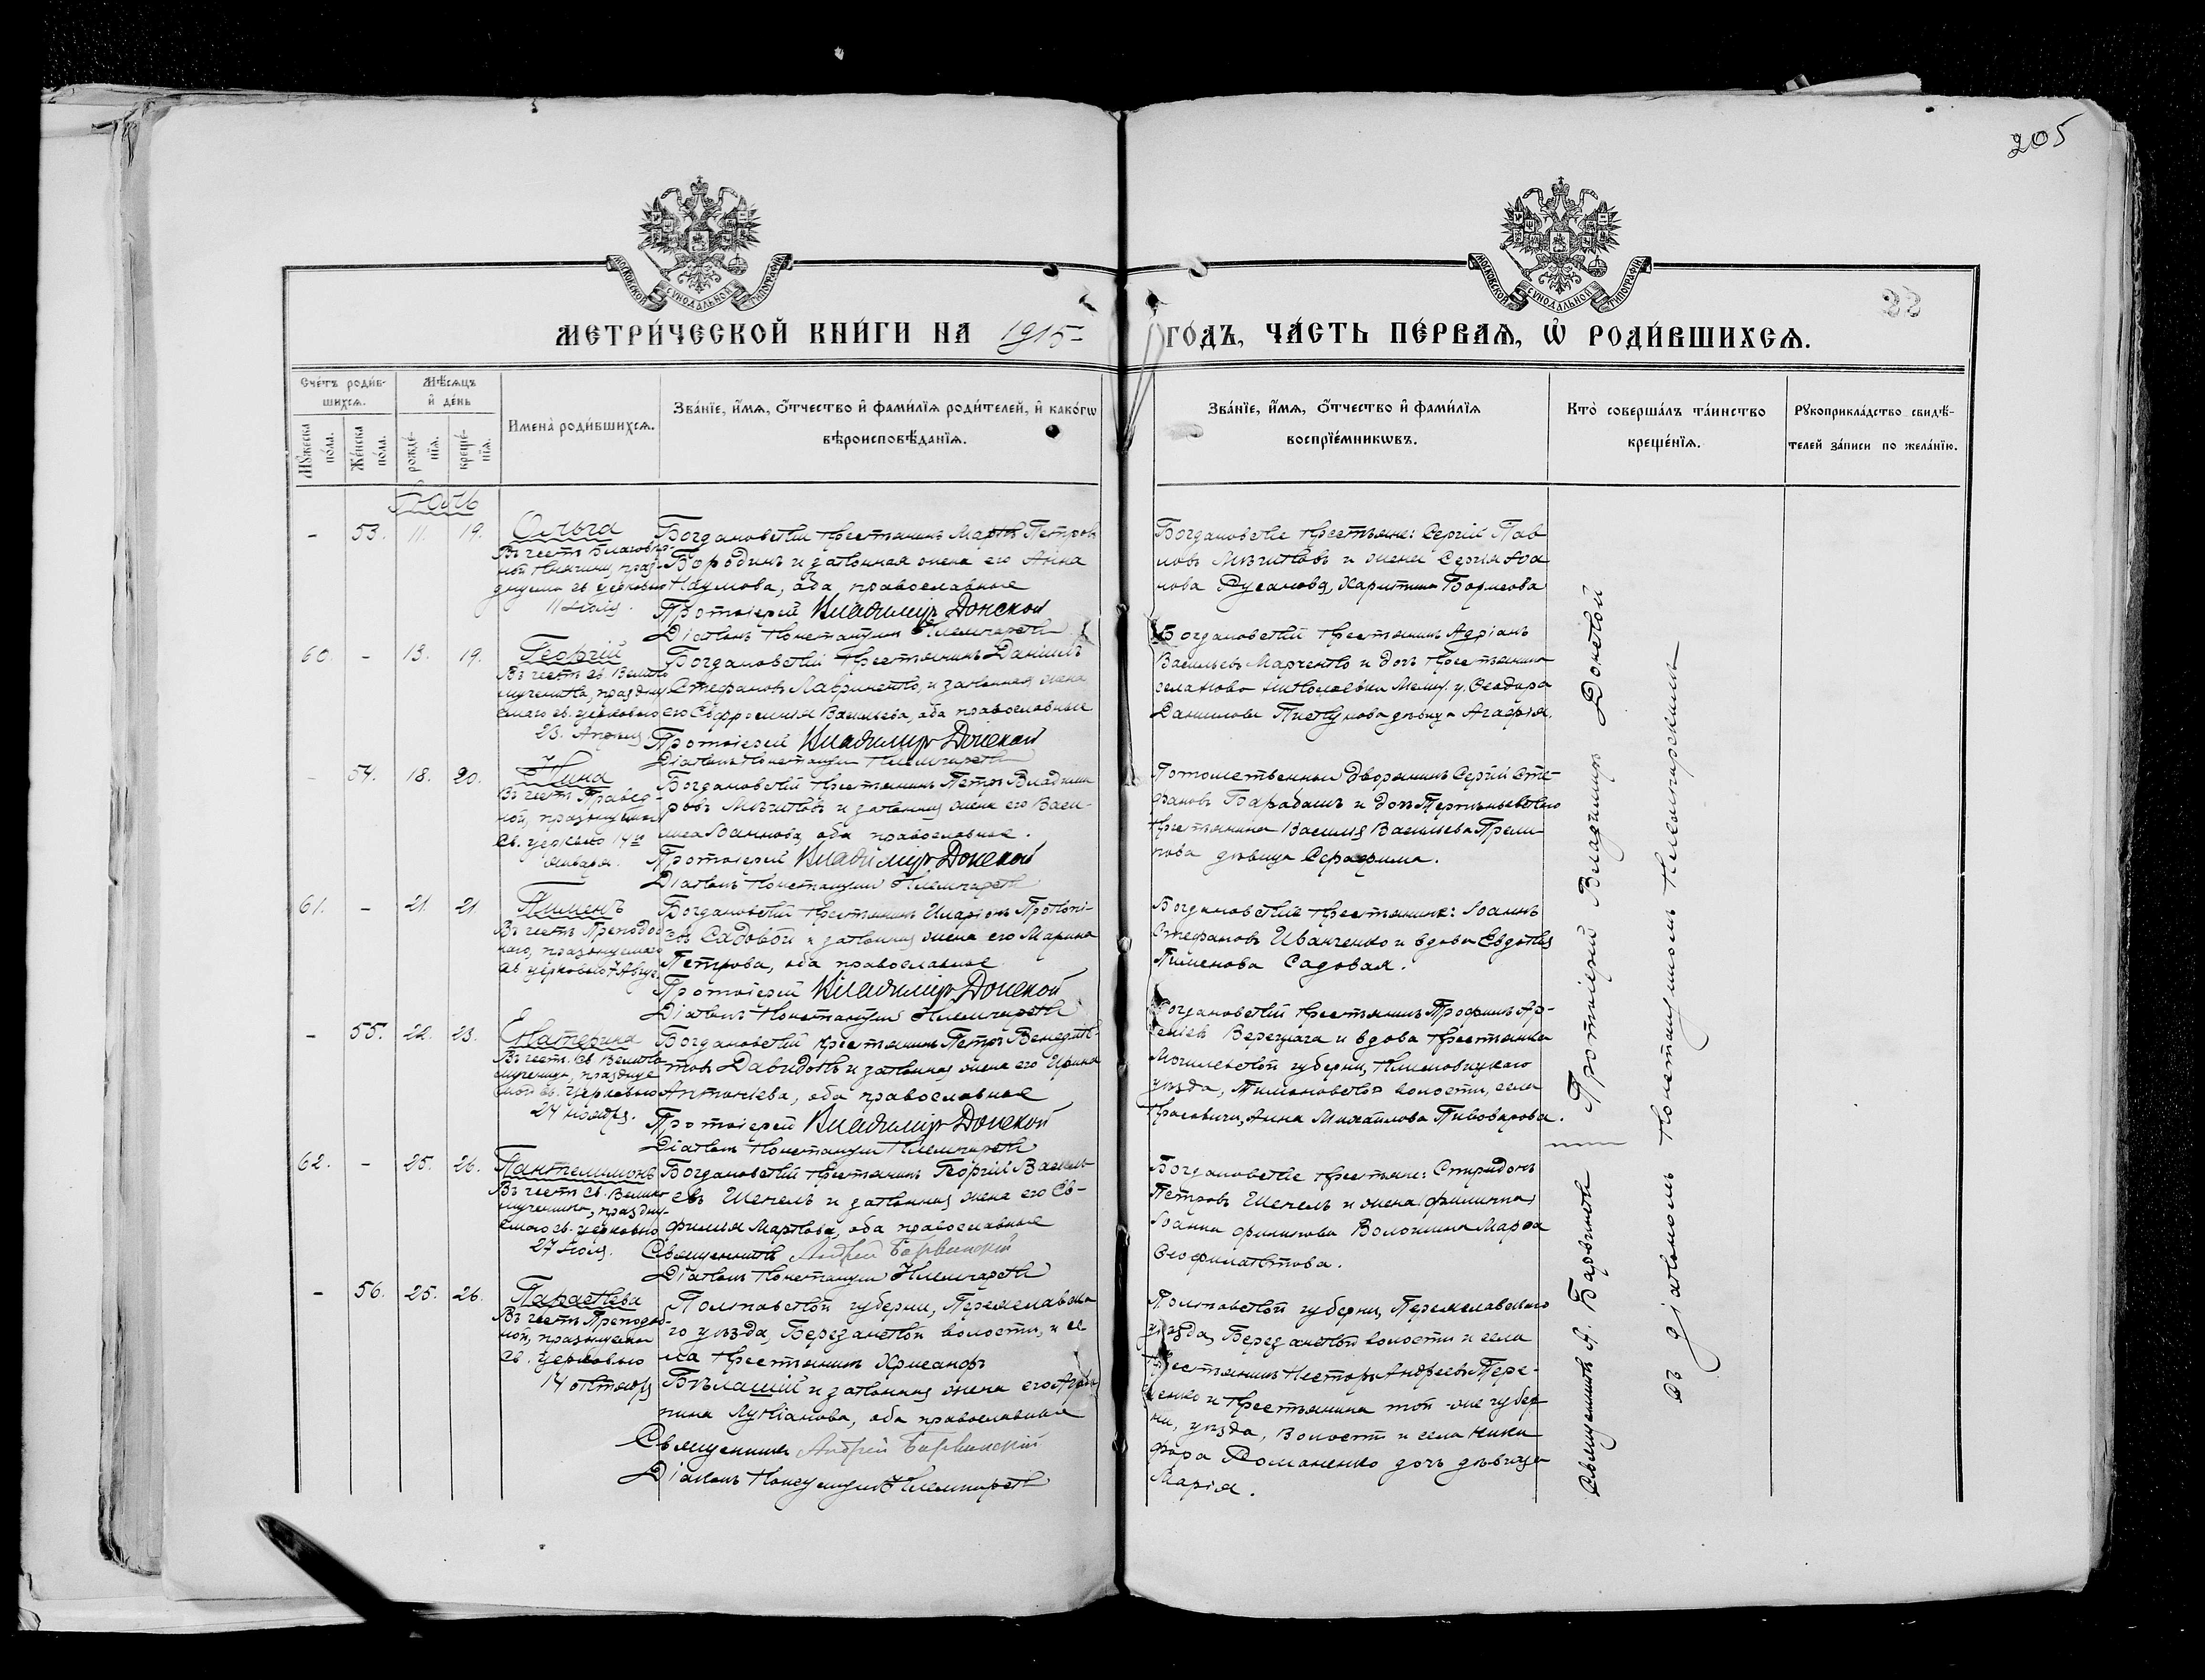 205
МОСКОВСКОЙ СѴНОДАЛЬНОЙ ТИПОГРАФІИ
МОСКОВСКОЙ СѴНОДАЛЬНОЙ ТИПОГРАФІИ
МЕТРИ́ЧЕСКОЙ КНИ́ГИ НА 1915
ГО́ДЪ, ЧА́СТЬ ПЕ́РВАѦ, Ѡ҆ РОДИ́ВШИХСѦ.
Сче́тъ роди́в-
шихсѧ.
Мѣ́сѧцъ
и҆ де́нь
Мꙋ́жеска
по́ла.
Же́нска
по́ла.
рожде́-
нїѧ.
креще́-
нїѧ.
Имена̀ роди́вшихсѧ.
Зва́нїе, и҆́мѧ, ѻ҆́тчество и҆ фами́лїѧ роди́телей, и҆ како́гѡ
вѣроисповѣ́данїѧ.
Зва́нїе, и҆́мѧ, ѻ҆́тчество и҆ фами́лїѧ
воспрїе́мникѡвъ.
Кто̀ соверша́лъ та́инство
креще́нїѧ.
Рꙋкоприкла́дство свидѣ́-
телей за́писи по жела́нїю.
Іюль
- 53. 11. 19. Ольга
Въ честь Благовѣр-
ной Княгини, праз-
днуемой св. церковью
11 Іюля.
Богдановскій крестьянинъ Петров
Бородинъ и законная жена его Анна
Наумова, оба православные
Протоіерей Владиміръ Донской
Діаконъ Константинъ
Богдановскіе крестьяне: Сергій Пав
ловъ и жена Сергія
Харитина Борисова
60. - 13. 19. Георгій
Въ честь св. Велико
мученика, праздну
емаго св. церковью
23. Апрѣля.
Богдановскій крестьянинъ Даніилъ
Стефановъ Лавриненко, и законная жена
его Евфросинія Васильева, оба православные
Протоіерей Владиміръ Донской
Діаконъ Константинъ
Богдановскій крестьянинъ Адріанъ
Васильевъ Марченко и дочь крестьянина
села Ново Николаевки у. Ѳеодора
Данилова дѣвица Агафія.
- 54. 18. 20. Нина
Въ честь Правед-
ной, празднуемой
св. церковью 14го
Января.
Богдановскій крестьянинъ Петръ Владими
ровъ и законная жена его Васи-
лиса Іоаннова, оба православные.
Протоіерей Владиміръ Донской
Діаконъ Константинъ
Потомственный дворянинъ Сергій Сте-
фановъ Барабашъ и дочь
крестьянина Василія Васильева
дѣвица Серафима.
61. - 21. 21. Пименъ
Въ честь Преподоб
наго, празднуемаго
св. церковью 7 Авгус.
Богдановскій крестьянинъ Иларіонъ Прокопі-
евъ Садовой и законная жена его Марина
Петрова, оба православные
Протоіерей Владиміръ Донской
Діаконъ Константинъ
Богдановскіе крестьяне: Іоаннъ
Стефановъ Иванченко и вдова Евдокія
Пименова Садовая.
- 55. 22. 23. Екатерина
Въ честь Св. Велико
мученицы, праздну
емой св. церковью
24 ноября.
Богдановскій крестьянинъ Петръ Венедик-
товъ Давидовъ и законная жена его Ирина
Антоніева, оба православные
Протоіерей Владиміръ Донской
Діаконъ Константинъ
Богдановскій крестьянинъ Трофимъ Ар-
сеніевъ Верещага и вдова крестьянка
Могилевской губерніи, Климовицкаго
уѣзда, Тимоновской волости, села
Анна Михайлова Пивоварова.
62. - 25. 26. Пантелимонъ
Въ честь Св. Велико
мученика, праздну-
емаго св. церковью
27 Іюля.
Богдановскій крестьянинъ Георгій Василь
евъ Шекель и законная жена его Ев-
фимія Маркова, оба православные
Священникъ Андрей Барвинскій
Діаконъ Константинъ
Богдановскіе крестьяне: Спиридонъ
Петровъ Шекель и жена
Іоанна Филипова Волошина Марфа
Ѳеофилактова.
- 56. 25. 26. Параскева
Въ честь Преподоб-
ной, празднуемой
св. церковью
14 октября
Полтавской губерніи, Переяславска
го уѣзда, Березанской волости, и се
ла крестьянинъ Хрисанфъ
Бѣлашій и законная жена его Агрип
пина Лукіанова, оба православные
Священникъ Андрей Барвинскій
Діаконъ Константинъ
Полтавской губерніи, Переяславскаго
уѣзда, Березанской волости и села
крестьянинъ Несторъ Андреевъ Тере-
щенко и крестьянина той же губер
ніи, уѣзда, волости и села Ники
фора Романенко дочь дѣвица
Марія.
Протоіерей Владиміръ Донской
Священникъ А. Барвинскій
съ діакономъ Константиномъ